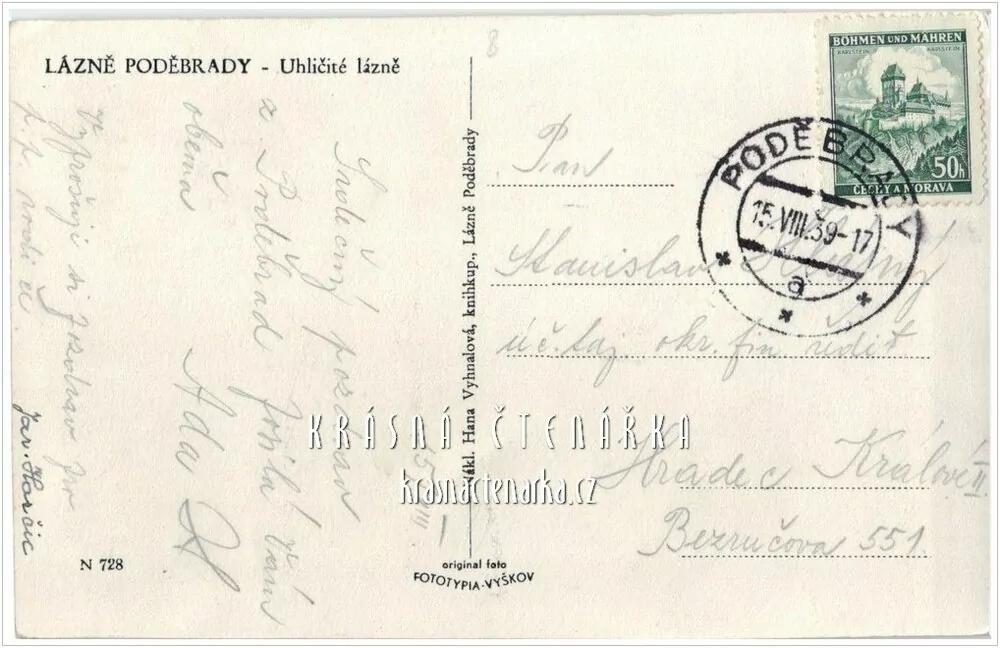 LÁZNĚ PODĚBRADY - Uhličité lázně
Srdečný pozdrav
z Poděbrad Vám
oběma
Ada
15. VIII
Jar. Horčic
N 728
Nákl. Hana Vyhnalová, knihkup., Lázně Poděbrady
original foto
FOTOTYPIA-VYŠKOV
8
BÖHMEN UND MÄHREN
KARLSTEIN KARLŠTEJN
50h
ČECHY A MORAVA
PODĚBRADY
15.VIII.39-17
a
Pan
Stanislav
úč. taj. okr. fin. ředit.
Hradec Králové II
Bezručova 551.
KRÁSNÁ ČTENÁŘKA
krasnactenarka.cz